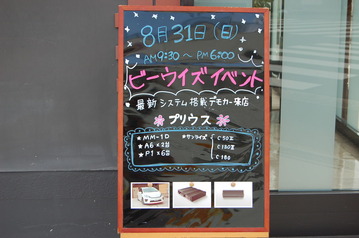 8月31日(日)
AM9:30 ~ PM6:00
ビーウィズイベント
最新システム搭載デモカー来店
プリウス
★MM-1D ★サンライズ C50Ⅱ
★A6×2台 C130Ⅱ
★P1×6台 C180